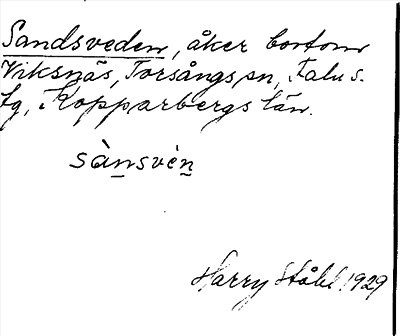 Sandsveden, åker bortom
Viksnäs, Torsångs sn, Falu s.
lg, Kopparbergs län.
sànsvèn
Harry Ståhl 1929